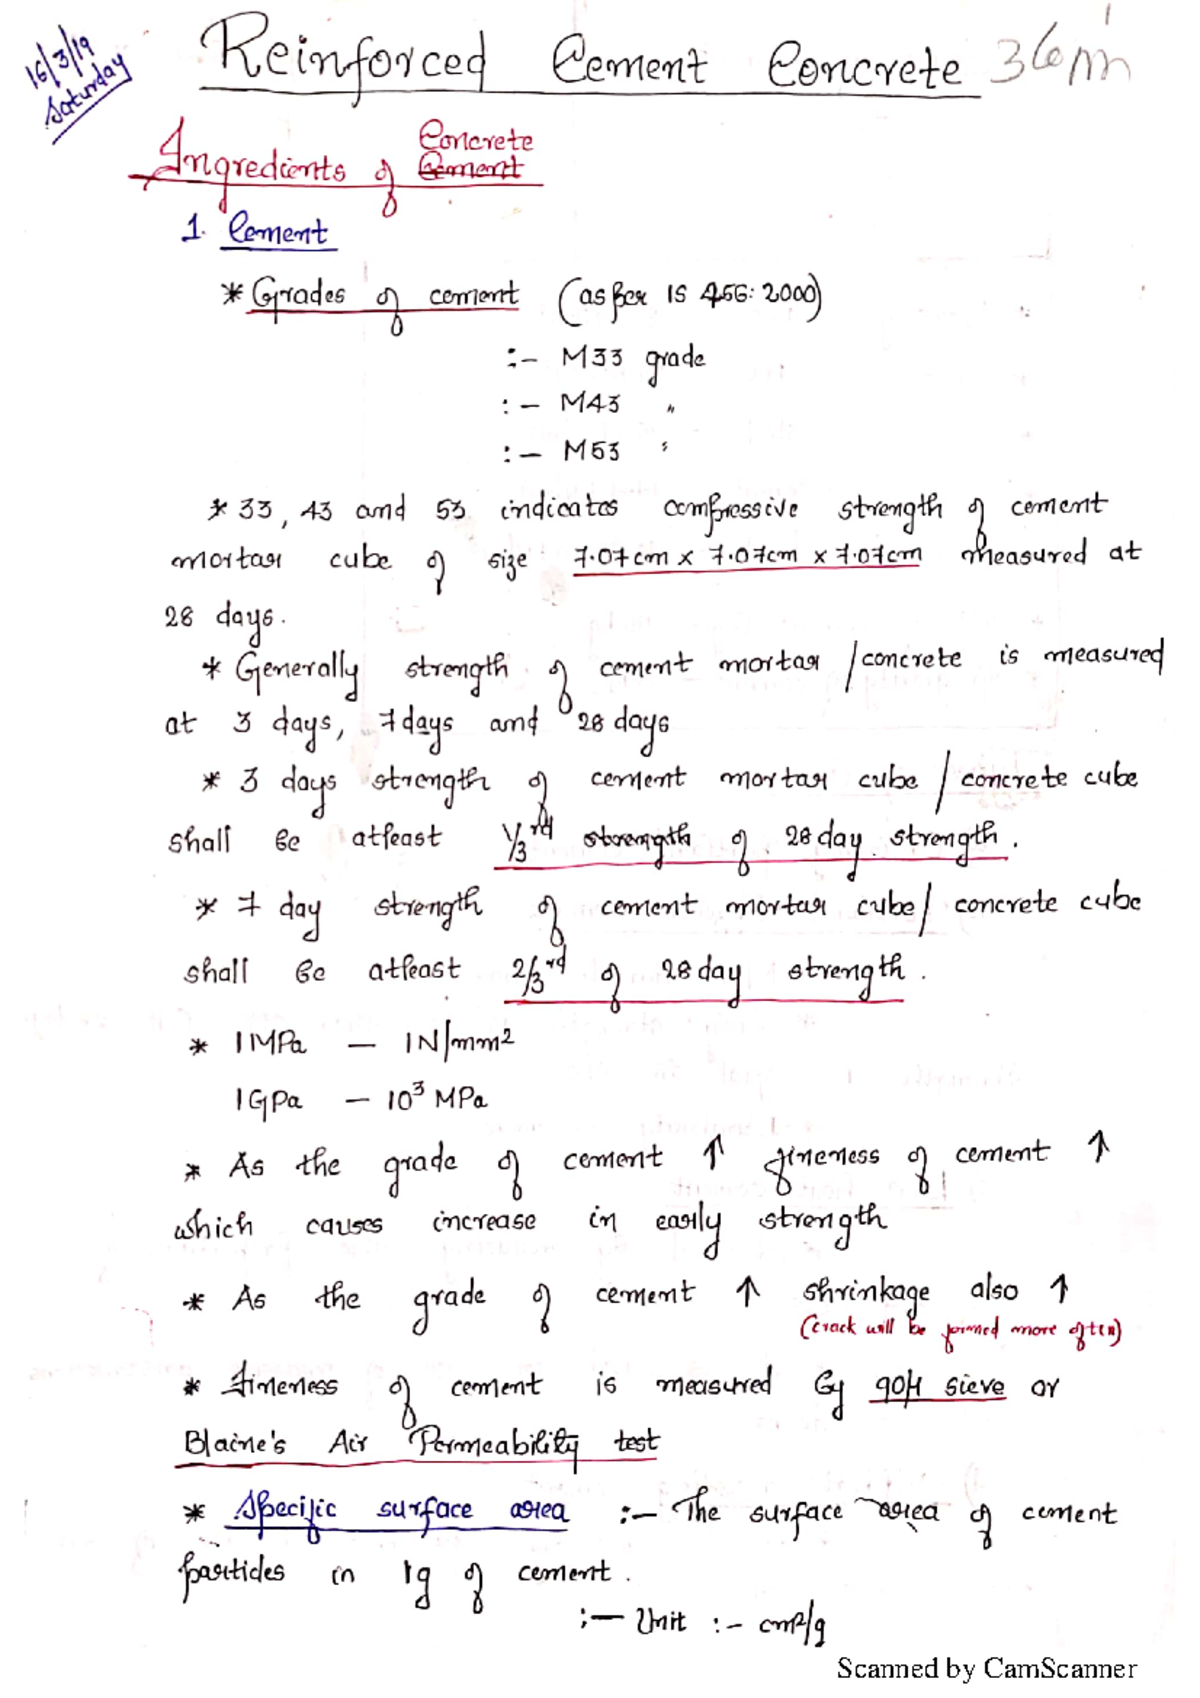 16/3/19
Saturday
Reinforced Cement Concrete
Ingredients of Concrete
Cement
1. Cement
* Grades of cement (as per IS 456:2000)
:- M33 grade
:- M43 "
:- M53 "
* 33, 43 and 53 indicates compressive strength of cement
mortar cube of size 7.07cm x 7.07cm x 7.07cm measured at
28 days.
* Generally strength of cement mortar /concrete is measured
at 3 days, 7 days and 28 days
* 3 days strength of cement mortar cube / concrete cube
shall be atleast 1/3rd strength of 28 day strength.
* 7 day strength of cement mortar cube/ concrete cube
shall be atleast 2/3rd of 28 day strength.
* 1MPa — 1N/mm²
1GPa — 10³ MPa
* As the grade of cement ↑ fineness of cement ↑
which causes increase in early strength
* As the grade of cement ↑ shrinkage also ↑
(crack will be formed more often)
* Fineness of cement is measured by 90μ sieve or
Blaine's Air Permeability test
* Specific surface area :- The surface area of cement
particles in 1g of cement.
:- Unit :- cm²/g
Scanned by CamScanner